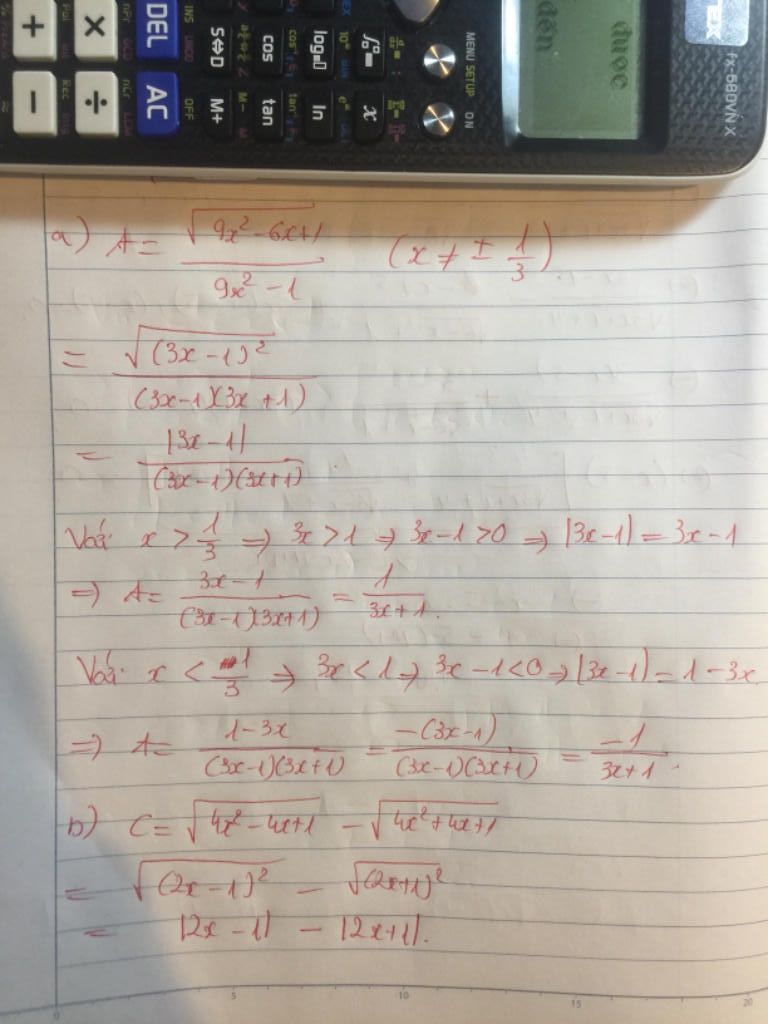 + × DEL INS UNDO
S⇔D cos log
− ÷ AC OFF
M+ tan ln x
MENU SETUP ON
được
đến
fx-580VN X
a) A = √(9x² − 6x + 1) / (9x² − 1) (x ≠ ± 1/3)
= √((3x − 1)²) / ((3x−1)(3x + 1))
= |3x − 1| / ((3x−1)(3x+1)).
Với: x > 1/3 ⇒ 3x > 1 ⇒ 3x−1 > 0 ⇒ |3x−1| = 3x − 1
⇒ A = (3x − 1) / ((3x−1)(3x+1)) = 1 / (3x+1).
Với: x < 1/3 ⇒ 3x < 1 ⇒ 3x − 1 < 0 ⇒ |3x − 1| = 1 − 3x
⇒ A = (1 − 3x) / ((3x−1)(3x+1)) = −(3x−1) / ((3x−1)(3x+1)) = −1 / (3x+1).
b) C = √(4x² − 4x + 1) − √(4x² + 4x + 1)
= √((2x − 1)²) − √((2x+1)²)
= |2x − 1| − |2x + 1|.
0 5 10 15 20